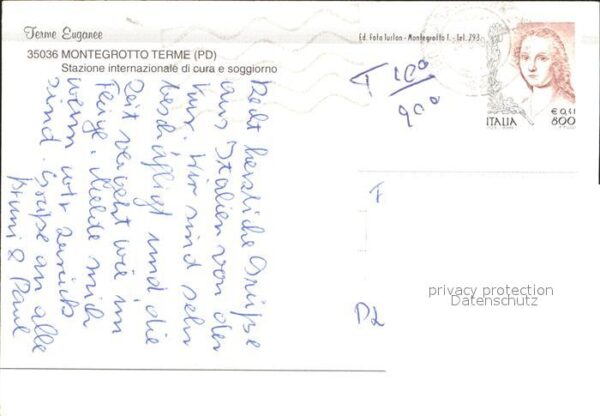 Terme Euganee
35036 MONTEGROTTO TERME (PD)
Stazione internazionale di cura e soggiorno
Ed. Foto Turlon - Montegrotto T. - Tel. 793
T 100/900
ITALIA
€ 0,41
800
F
Recht herzliche Grüße
aus Italien von der
Kur. Wir sind sehr
beschäftigt und die
Zeit vergeht wie im
Fluge. Melde mich
wenn wir zurück
sind. Grüße an alle
Bruni & Paul
privacy protection
Datenschutz